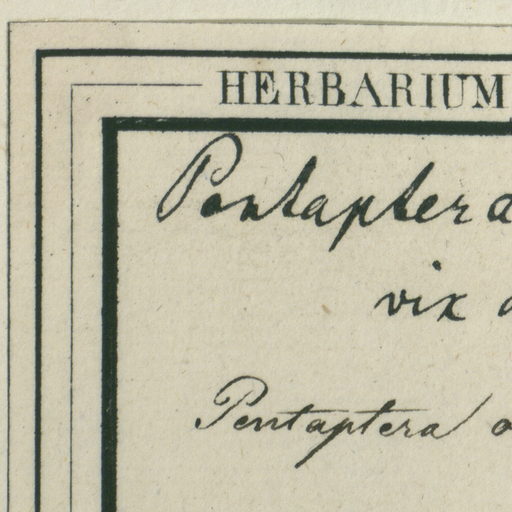 HERBARIUM
Pentaptera
vix
Pentaptera